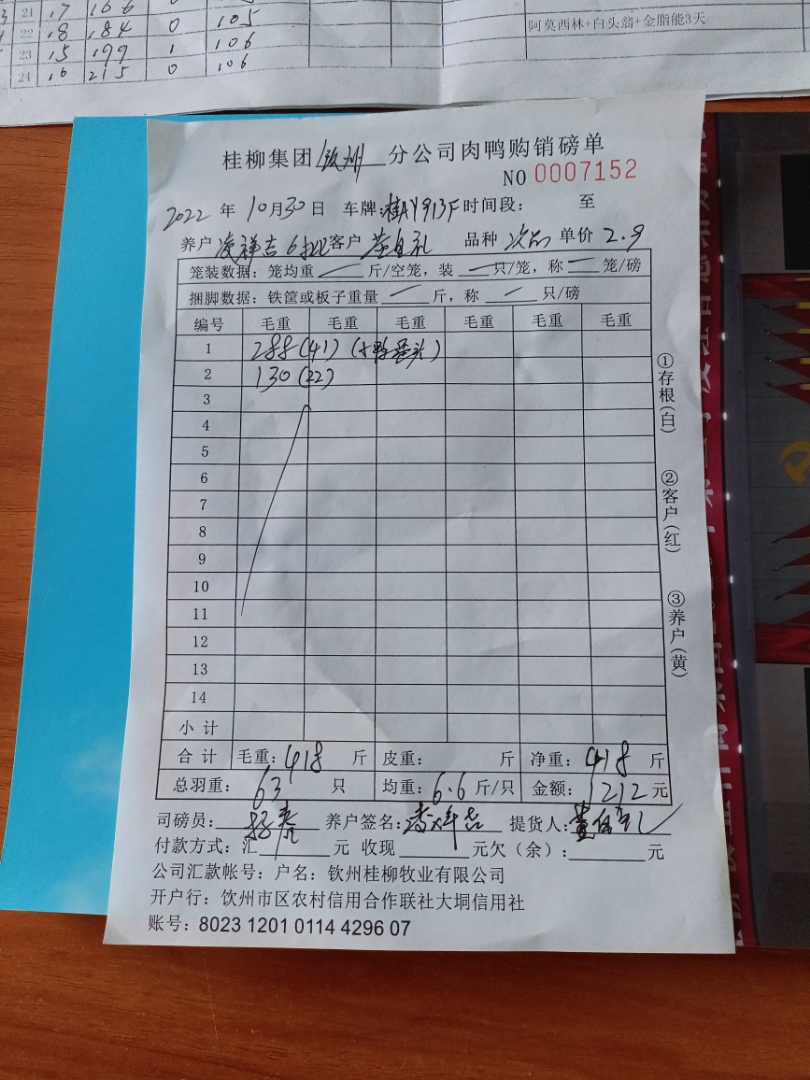 21 17 166 0 105
22 18 184 0 105
阿莫西林+白头翁+金脂能3天
23 15 199 1 106
24 16 215 0 106
桂柳集团钦州分公司肉鸭购销磅单
NO 0007152
2022年10月30日 车牌:桂AY913F 时间段: 至
养户 凌祥吉 6批 客户 品种 次品 单价 2.9
笼装数据:笼均重 — 斤/空笼,装 — 只/笼,称 — 笼/磅
捆脚数据:铁筐或板子重量 — 斤,称 — 只/磅
编号 毛重 毛重 毛重 毛重 毛重 毛重
1 288(41)
2 130(22)
3
4
5
6
7
8
9
10
11
12
13
14
小计
合计 毛重:418 斤 皮重: 斤 净重:418 斤
总羽重:63 只 均重:6.6 斤/只 金额:1212元
司磅员: 养户签名: 提货人:
付款方式:汇 元 收现 元欠(余): 元
公司汇款帐号:户名:钦州桂柳牧业有限公司
开户行:饮州市区农村信用合作联社大垌信用社
账号:8023 1201 0114 4296 07
①存根(白)
②客户(红)
③养户(黄)